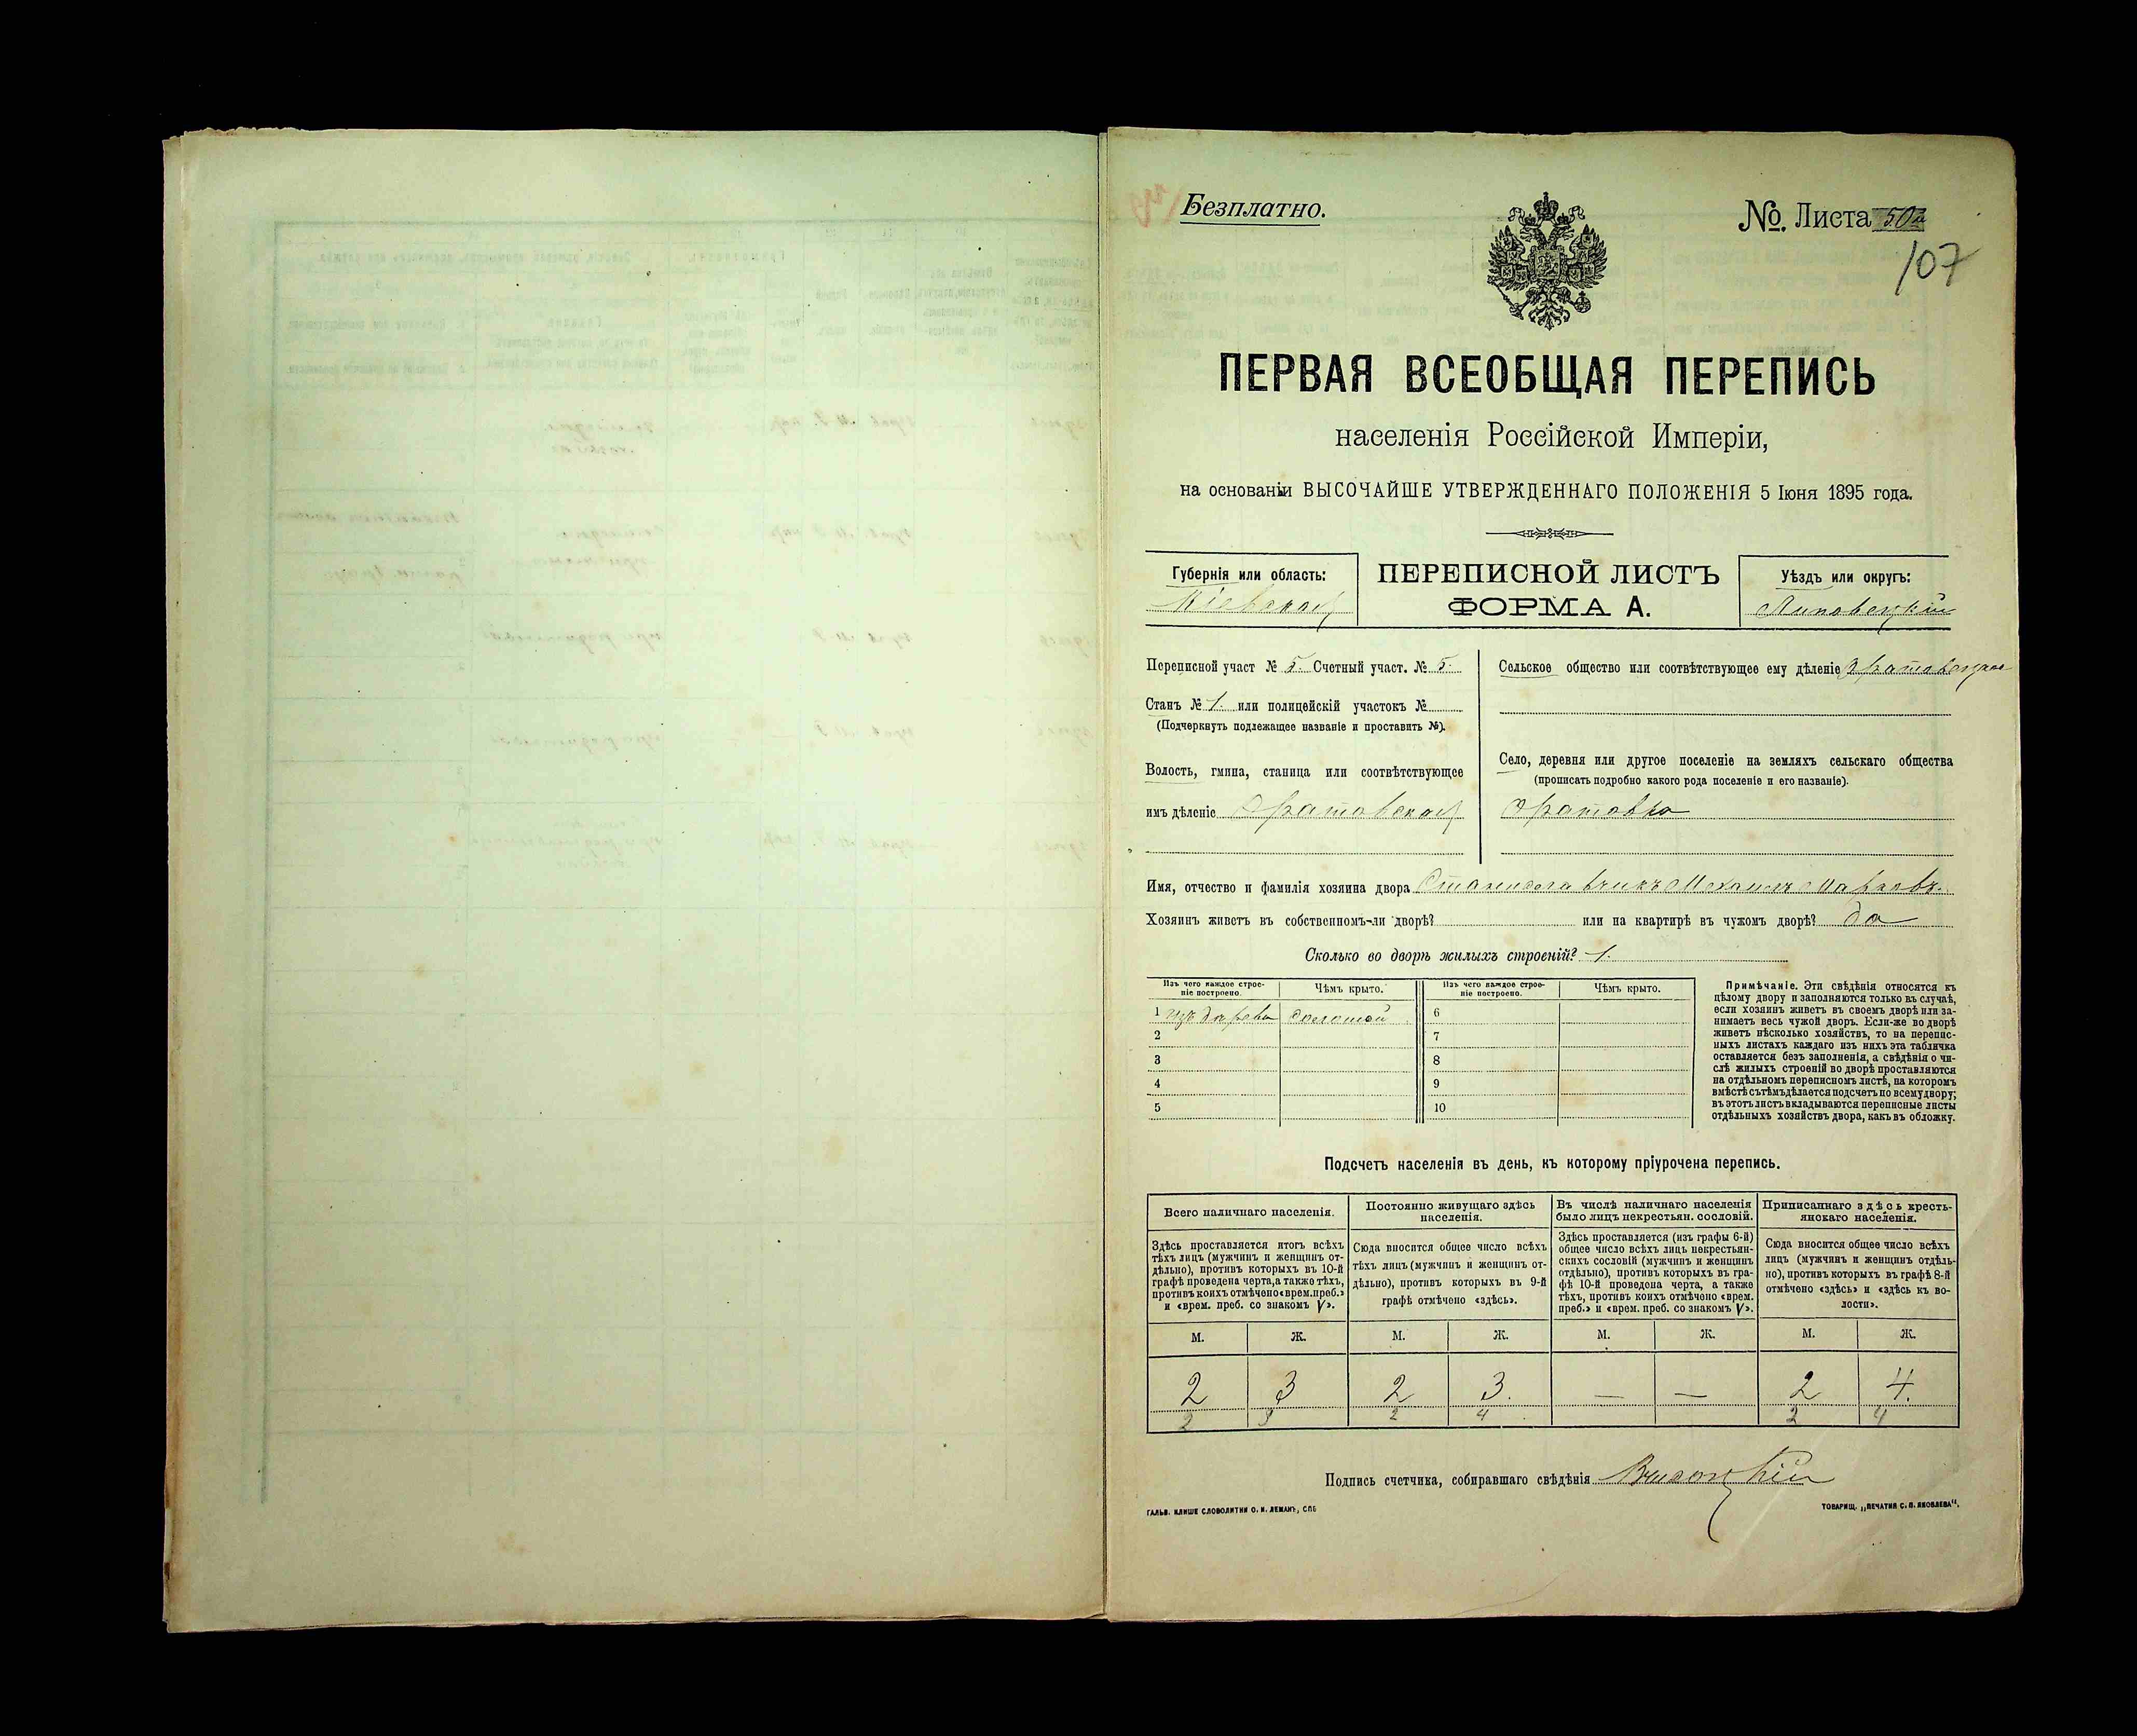 Безплатно.
№. Листа 50
107
ПЕРВАЯ ВСЕОБЩАЯ ПЕРЕПИСЬ
населенія Россійской Имперіи,
на основаніи ВЫСОЧАЙШЕ УТВЕРЖДЕННАГО ПОЛОЖЕНІЯ 5 Іюня 1895 года.
Губернія или область:
Кіевская
ПЕРЕПИСНОЙ ЛИСТЪ
ФОРМА А.
Уѣздъ или округъ:
Липовецкій
Переписной участ № 5. Счетный участ. № 5.
Станъ № 1. или полицейскій участокъ №
(Подчеркнуть подлежащее названіе и проставить №).
Волость, гмина, станица или соотвѣтствующее
имъ дѣленіе Оратовская
Сельское общество или соотвѣтствующее ему дѣленіе
Село, деревня или другое поселеніе на земляхъ сельскаго общества
(прописать подробно какого рода поселеніе и его названіе).
Оратовка
Имя, отчество и фамилія хозяина двора
Хозяинъ живетъ въ собственномъ-ли дворѣ? или на квартирѣ въ чужомъ дворѣ? да
Сколько во дворѣ жилыхъ строеній? 1.
Изъ чего каждое строе-
ніе построено.
Чѣмъ крыто.
Изъ чего каждое строе-
ніе построено.
Чѣмъ крыто.
1 изъ дерева соломой 6
2 7
3 8
4 9
5 10
Примѣчаніе. Эти свѣдѣнія относятся къ
цѣлому двору и заполняются только въ случаѣ,
если хозяинъ живетъ въ своемъ дворѣ или за-
нимаетъ весь чужой дворъ. Если-же во дворѣ
живетъ нѣсколько хозяйствъ, то на перепис-
ныхъ листахъ каждаго изъ нихъ эта табличка
оставляется безъ заполненія, а свѣдѣнія о чи-
слѣ жилыхъ строеній во дворѣ проставляются
на отдѣльномъ переписномъ листѣ, на которомъ
вмѣстѣ съ тѣмъ дѣлается подсчетъ по всему двору;
въ этотъ листъ вкладываются переписные листы
отдѣльныхъ хозяйствъ двора, какъ въ обложку.
Подсчетъ населенія въ день, къ которому пріурочена перепись.
Всего наличнаго населенія.
Здѣсь проставляется итогъ всѣхъ
тѣхъ лицъ (мужчинъ и женщинъ от-
дѣльно), противъ которыхъ въ 10-й
графѣ проведена черта, а также тѣхъ,
противъ коихъ отмѣчено «врем. преб.»
и «врем. преб. со знакомъ V».
Постоянно живущаго здѣсь
населенія.
Сюда вносится общее число всѣхъ
тѣхъ лицъ (мужчинъ и женщинъ от-
дѣльно), противъ которыхъ въ 9-й
графѣ отмѣчено «здѣсь».
Въ числѣ наличнаго населенія
было лицъ некрестьян. сословій.
Здѣсь проставляется (изъ графы 6-й)
общее число всѣхъ лицъ некрестьян-
скихъ сословій (мужчинъ и женщинъ
отдѣльно), противъ которыхъ въ гра-
фѣ 10-й проведена черта, а также
тѣхъ, противъ коихъ отмѣчено «врем.
преб.» и «врем. преб. со знакомъ V».
Приписаннаго здѣсь кресть-
янскаго населенія.
Сюда вносится общее число всѣхъ
лицъ (мужчинъ и женщинъ отдѣль-
но), противъ которыхъ въ графѣ 8-й
отмѣчено «здѣсь» и «здѣсь къ во-
лости».
М. Ж. М. Ж. М. Ж. М. Ж.
2 3 2 3. — — 2 4.
2 3 2 4 2 4
Подпись счетчика, собиравшаго свѣдѣнія
ГАЛЬВ. КЛИШЕ СЛОВОЛИТНИ О. И. ЛЕМАНЪ, СПБ
ТОВАРИЩ. „ПЕЧАТНЯ С. П. ЯКОВЛЕВА".